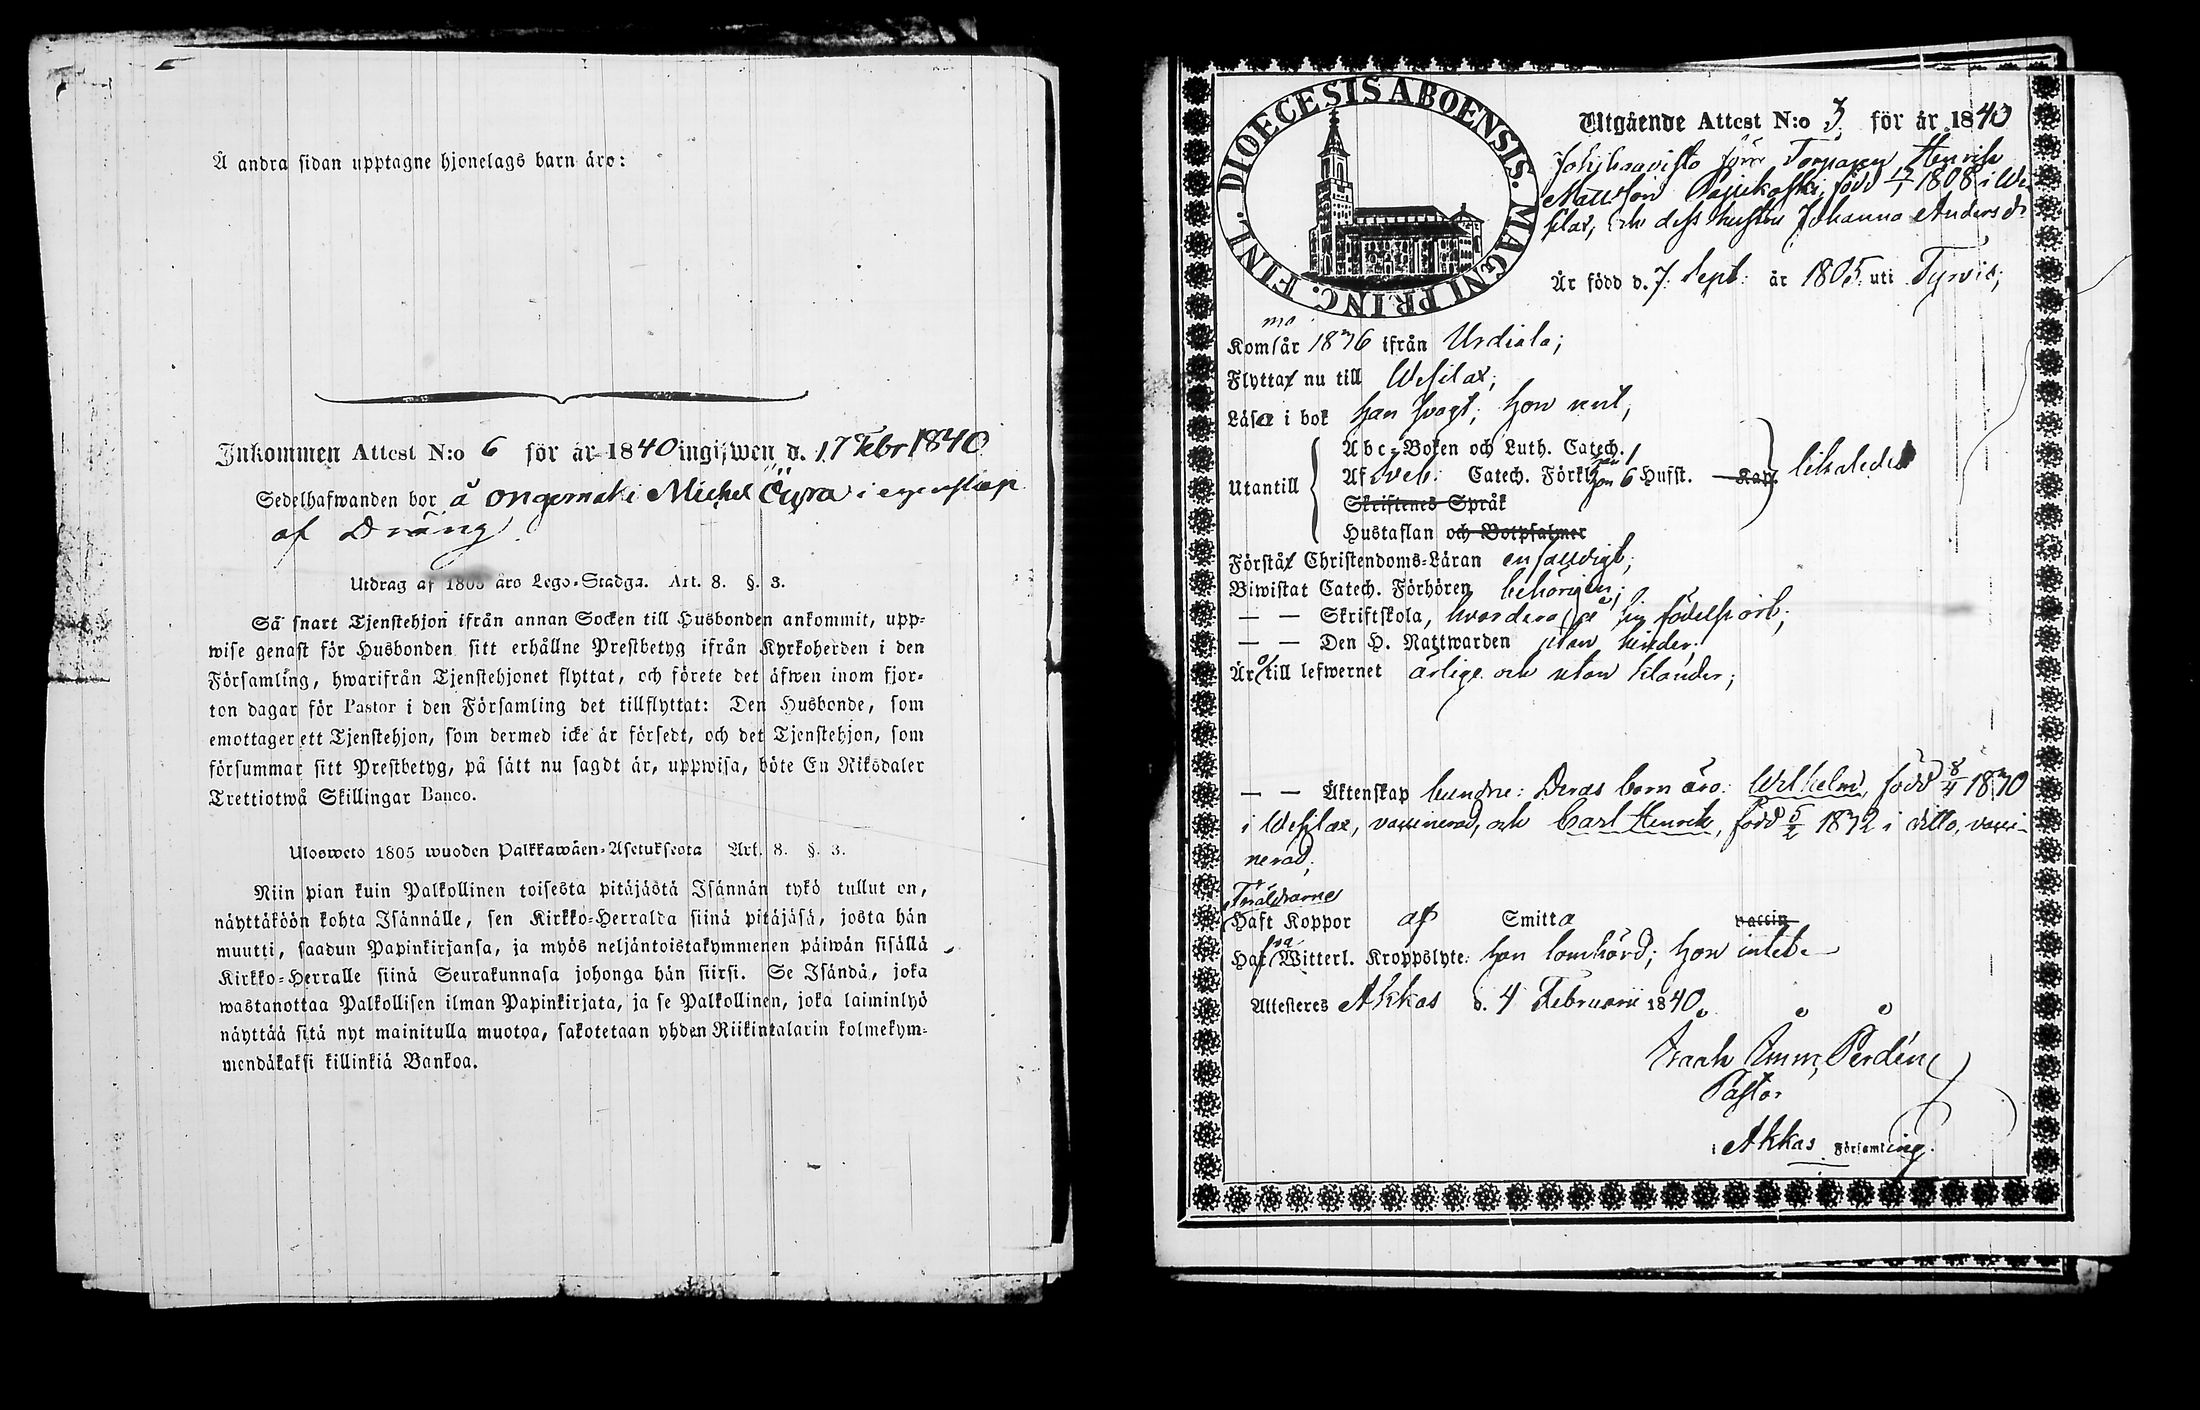 Å andra sidan upptagne hjonelags barn äro:
Inkommen Attest N:o 6 för år 1840 ingifwen d. 17 Febr 1840
Sedelhafwanden bor å Ongemaki Michel Öüra i egenskap
af Dräng
Utdrag af 1805 års Lego-Stadga. Art. 8. §. 3.
Så snart Tjenstehjon ifrån annan Socken till Husbonden ankommit, upp-
wise genast för Husbonden sitt erhållne Prestbetyg ifrån Kyrkoherden i den
Församling, hwarifrån Tjenstehjonet flyttat, och förete det äfwen inom fjor-
ton dagar för Pastor i den Församling det tillflyttat: Den Husbonde, som
emottager ett Tjenstehjon, som dermed icke är försedt, och det Tjenstehjon, som
försummar sitt Prestbetyg, på sätt nu sagdt är, uppwisa, böte En Riksdaler
Trettiotwå Skillingar Banco.
Ulosweto 1805 wuoden Palkkawäen-Asetuksesta Art. 8. §. 3.
Niin pian kuin Palkollinen toisesta pitäjästä Isännän tykö tullut on,
näyttäköön kohta Isännälle, sen Kirkko-Herralda siinä pitäjäsä, josta hän
muutti, saadun Papinkirjansa, ja myös neljäntoistakymmenen päiwän sisällä
Kirkko-Herralle siinä Seurakunnasa johonga hän siirsi. Se Isändä, joka
wastanottaa Palkollisen ilman Papinkirjata, ja se Palkollinen, joka laiminlyö
näyttää sitä nyt mainitulla muotoa, sakotetaan yhden Riikintalarin kolmekym-
mendäkaksi killinkiä Bankoa.
DIOECESIS ABOENSIS. MAGNI PRINC. FINL.
Utgående Attest N:o 3 för år 1840
förre Torparen Henrik
Mattsson född 1808 i We-
silax, och dess hustru Johanna Andersdr
Är född d. 7 Sept. år 1805 uti Tyrvis;
Komma år 1836 ifrån Urdiala;
Flytta nu till Wesilax;
Läsa i bok han svagt, hon rent,
Utantill
Abc-Boken och Luth. Catech.
Af Sveb. Catech. Förkl. han 1 hon 6 Hufst. Kap.
likaledes
Skriftenes Språk
Hustaflan och Botpsalmer
Förstå Christendoms-Läran enfaldigt;
Biwistat Catech. Förhören behörigen;
— — Skriftskola, hvardera på sin födelseort;
— — Den H. Nattwarden utan hinder;
Äro till lefwernet ärlige och utan klander;
— — Äktenskap bundne: Deras barn äro: Wilhelm, född 8/4 1830
i Wesilax, vaccinerad, och Carl Henrik, född 5/2 1832 i ditto, vacci-
nerad;
Föräldrarne
Haft Koppor af Smitta vaccin
Hafva Witterl. Kroppslyte: han lomhörd; hon intet.
Attesteres Akkas d. 4 Februarii 1840.
Isaak Emm. Perdén
Pastor
i Akkas Församling.